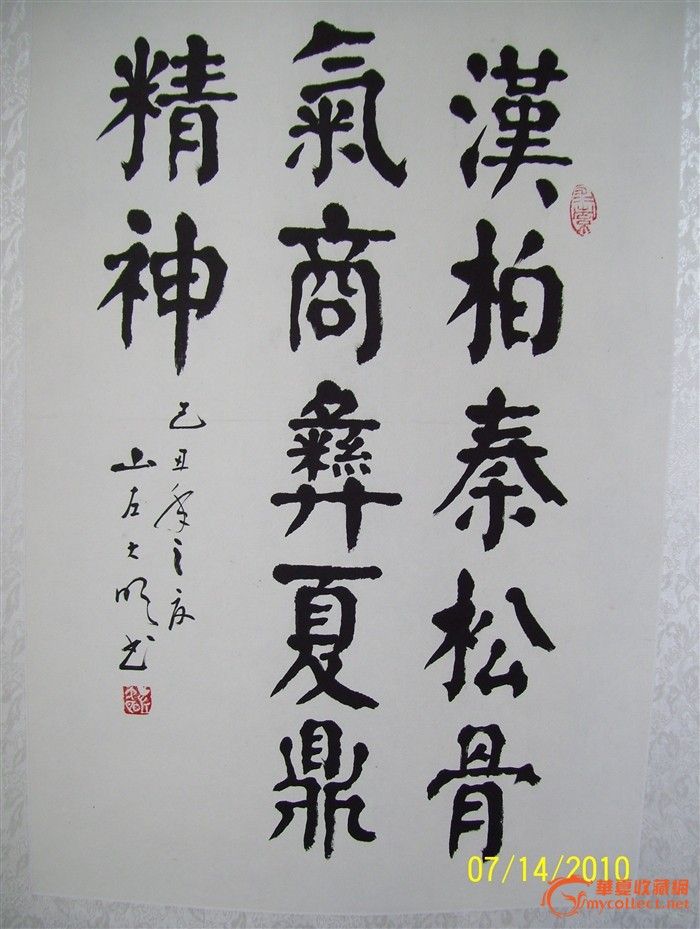 漢柏秦松骨
氣商彝夏鼎
精神
己丑年之夏
山左大明书
07/14/2010
華夏收藏網
mycollect.net